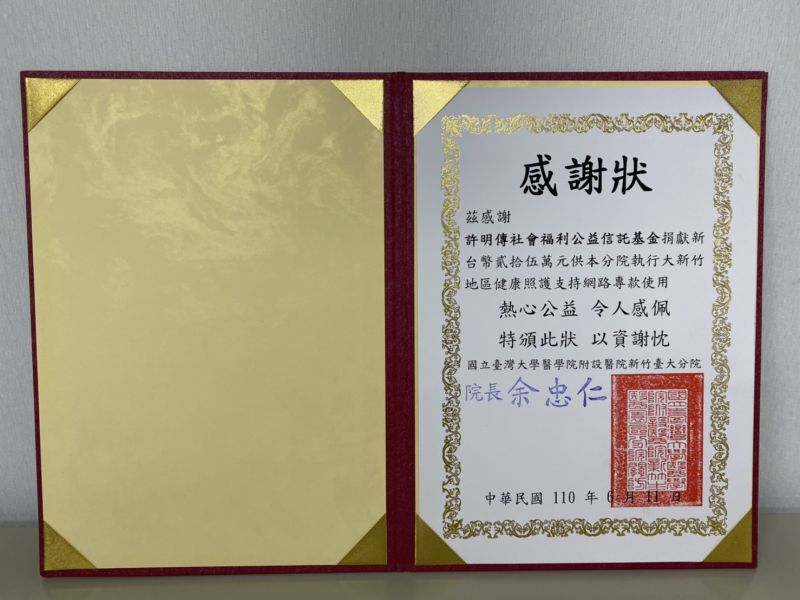 感謝狀
茲感謝
許明傳社會福利公益信託基金捐獻新
台幣貳拾伍萬元供本分院執行大新竹
地區健康照護支持網路專款使用
熱心公益 令人感佩
特頒此狀 以資謝忱
國立臺灣大學醫學院附設醫院新竹臺大分院
院長 余忠仁
中華民國 110 年 6 月 11 日